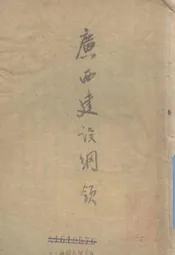 廣西建设綱領